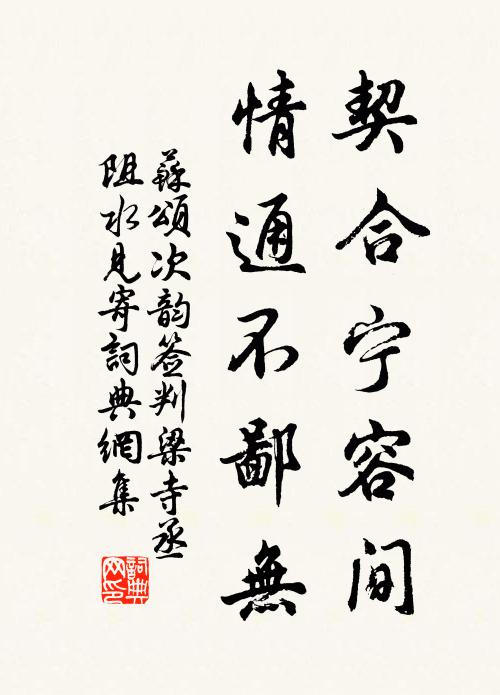 契合宁容间
情通不鄙無
蘇頌次韵签判梁寺丞
阻水見寄詞典網集
詞典网印